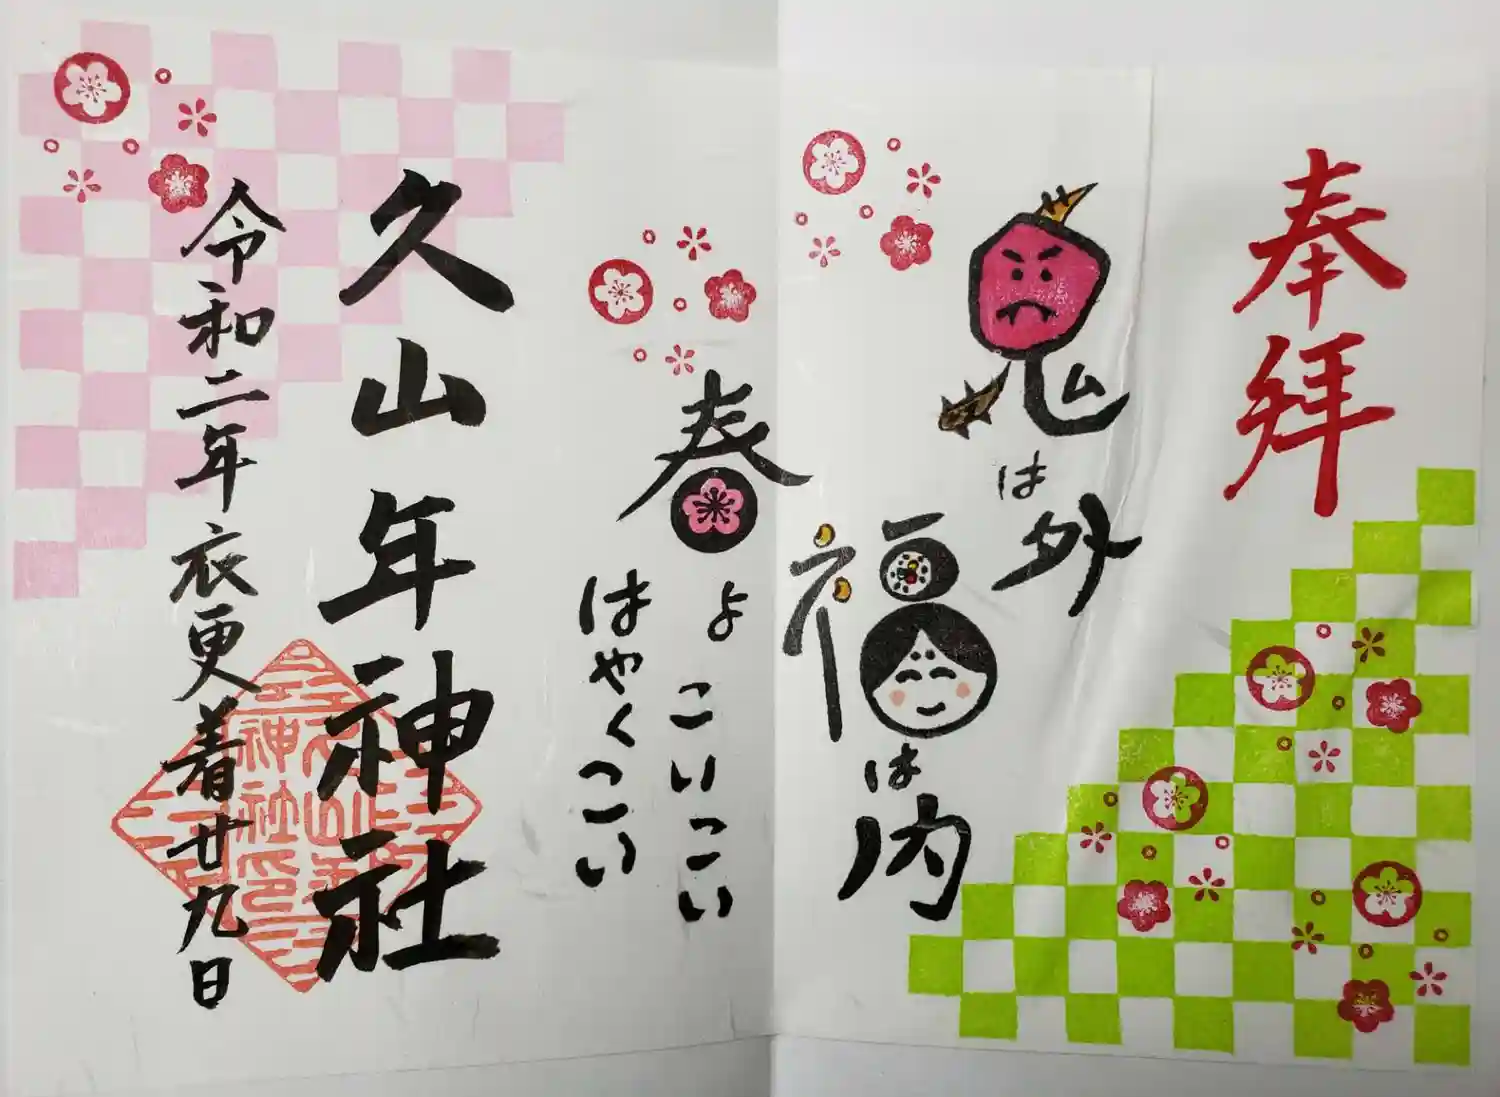 奉拝
鬼は外
福は内
春よこいこい
はやくこい
久山年神社
令和二年衣更着廿九日